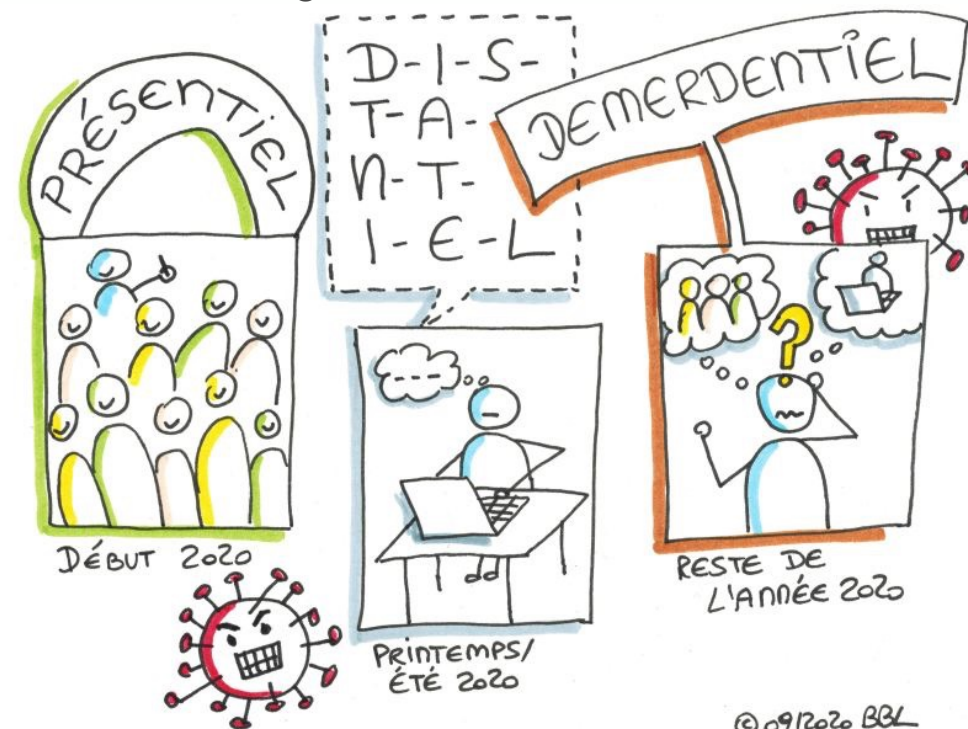 PRÉSENTIEL
DÉBUT 2020
D-I-S-
T-A-
N-T-
I-E-L
PRINTEMPS/
ÉTÉ 2020
DEMERDENTIEL
?
RESTE DE
L'ANNÉE 2020
© 09/2020 BBL